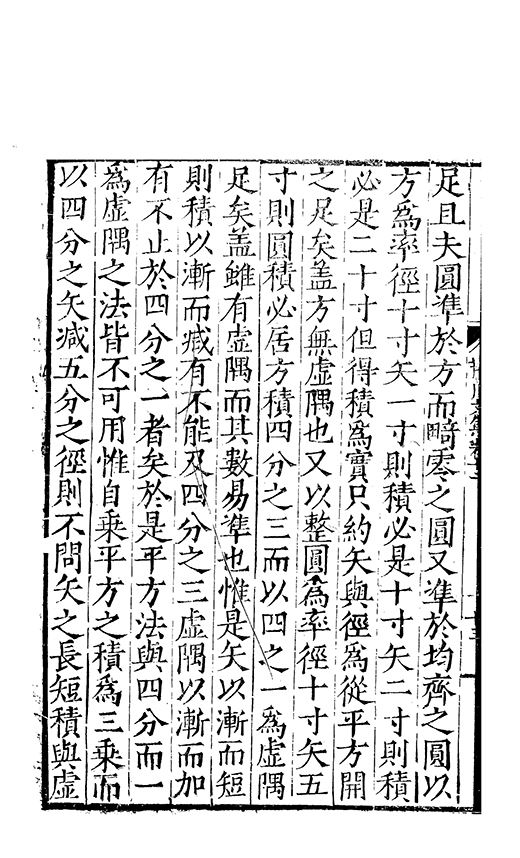 足且夫圓準於方而畸零之圓又準於均齊之圓以
方爲率徑十寸矢一寸則積必是十寸矢二寸則積
必是二十寸但得積爲實只約矢與徑爲從平方開
之足矣盖方無虛隅也又以整圓爲率徑十寸矢五
寸則圓積必居方積四分之三而以四之一爲虛隅
足矣盖雖有虛隅而其數易準也惟是矢以漸而短
則積以漸而减有不能及四分之三虛隅以漸而加
有不止於四分之一者矣於是平方法與四分而一
爲虛隅之法皆不可用惟自乘平方之積爲三乘而
以四分之矢减五分之徑則不問矢之長短積與虛